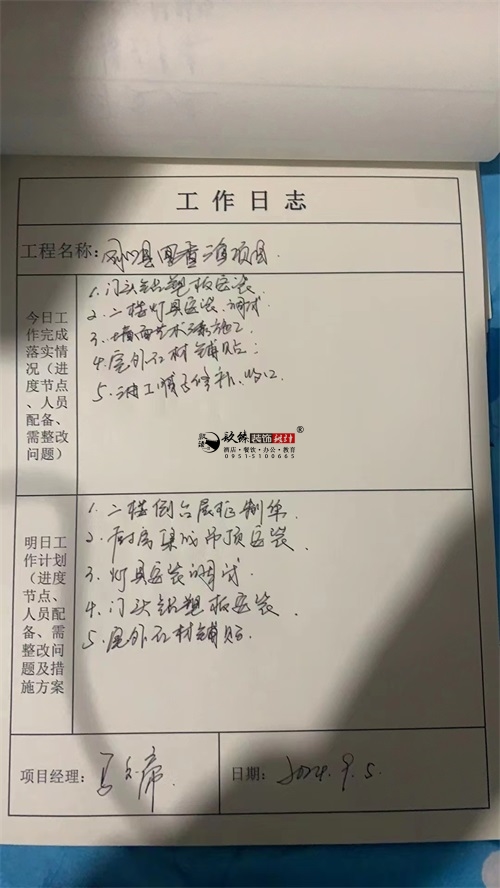 工作日志
工程名称:
今日工作完成落实情况(进度节点、人员配备、需整改问题)
1.门头铝塑板安装
2.二楼灯具安装、调试
3.墙面艺术漆施工
4.室外石材铺贴;
5.油工修补、收口
装饰设计
酒店·餐饮·办公·教育
0951-5100665
明日工作计划(进度节点、人员配备、需整改问题及措施方案
1.二楼倒台展柜制作
2.厨房集成吊顶安装
3.灯具安装调试
4.门头铝塑板安装
5.室外石材铺贴.
项目经理:
日期: 2024.9.5.